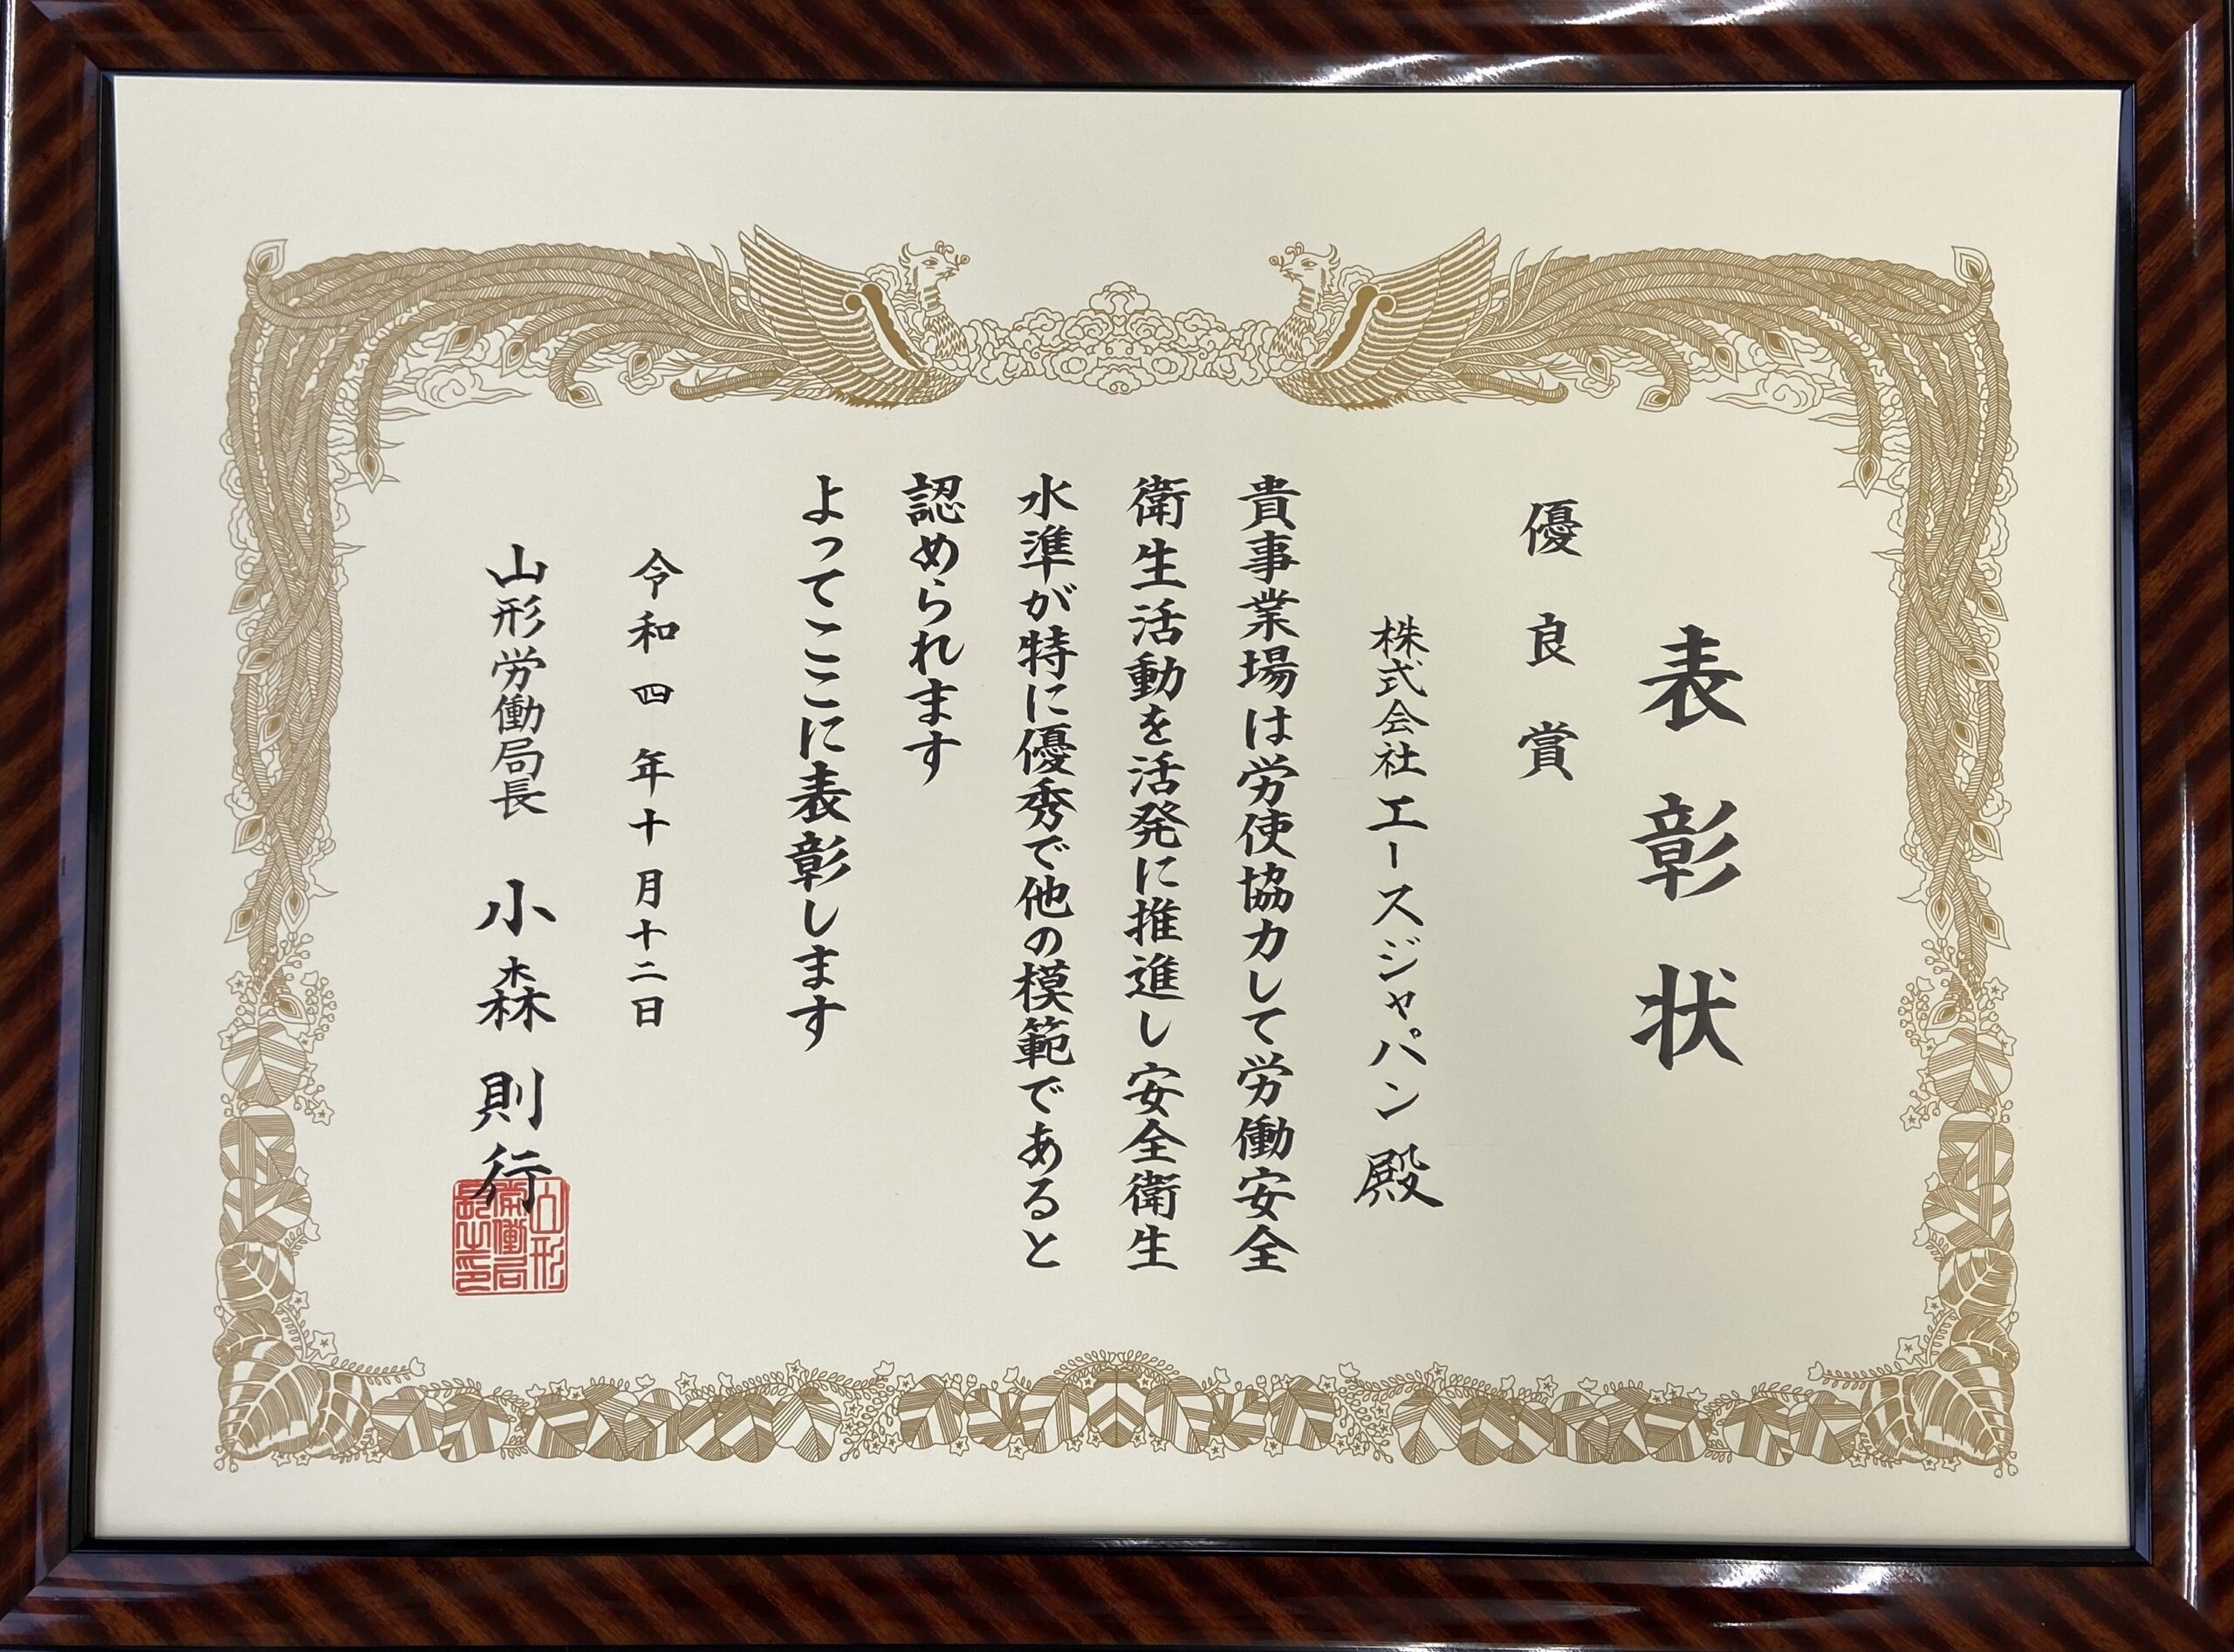 表彰状
優良賞
株式会社エースジャパン殿
貴事業場は労使協力して労働安全
衛生活動を活発に推進し安全衛生
水準が特に優秀で他の模範であると
認められます
よってここに表彰します
令和四年十月十二日
山形労働局長 小森則行
山形
労働局
長之印